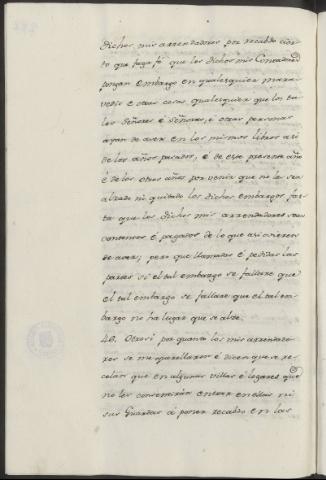 dichos mis arrendadores por recabdo cier-
to que faga fé que los dichos mis Contadores
pongan embargo en qualesquier mara-
vedis e otras cosas qualesquier que los ta-
les Señores é Señoras, é otras personas
ayan de aver en los mismos libros asi
de los años pasados, é de este presente año
é de los otros años por venir que no le sea
alzado ni quitado los dichos embargos fas-
ta que los dichos mis arrendadores sean
contentos é pagados de lo que asi ovieren
de aver; pero que llamadas é pedidas las
partes si el tal embargo se fallare que
el tal embargo se fallare que el tal em-
bargo no ha lugar que se alze.
40. Otrosi por quanto los mis arrendado-
res se me querellaron é dicen que a re-
celan que en algunas villas é logares que
no les consentirán entrar en ellas ni
sus Guardas á poner recabdo en las